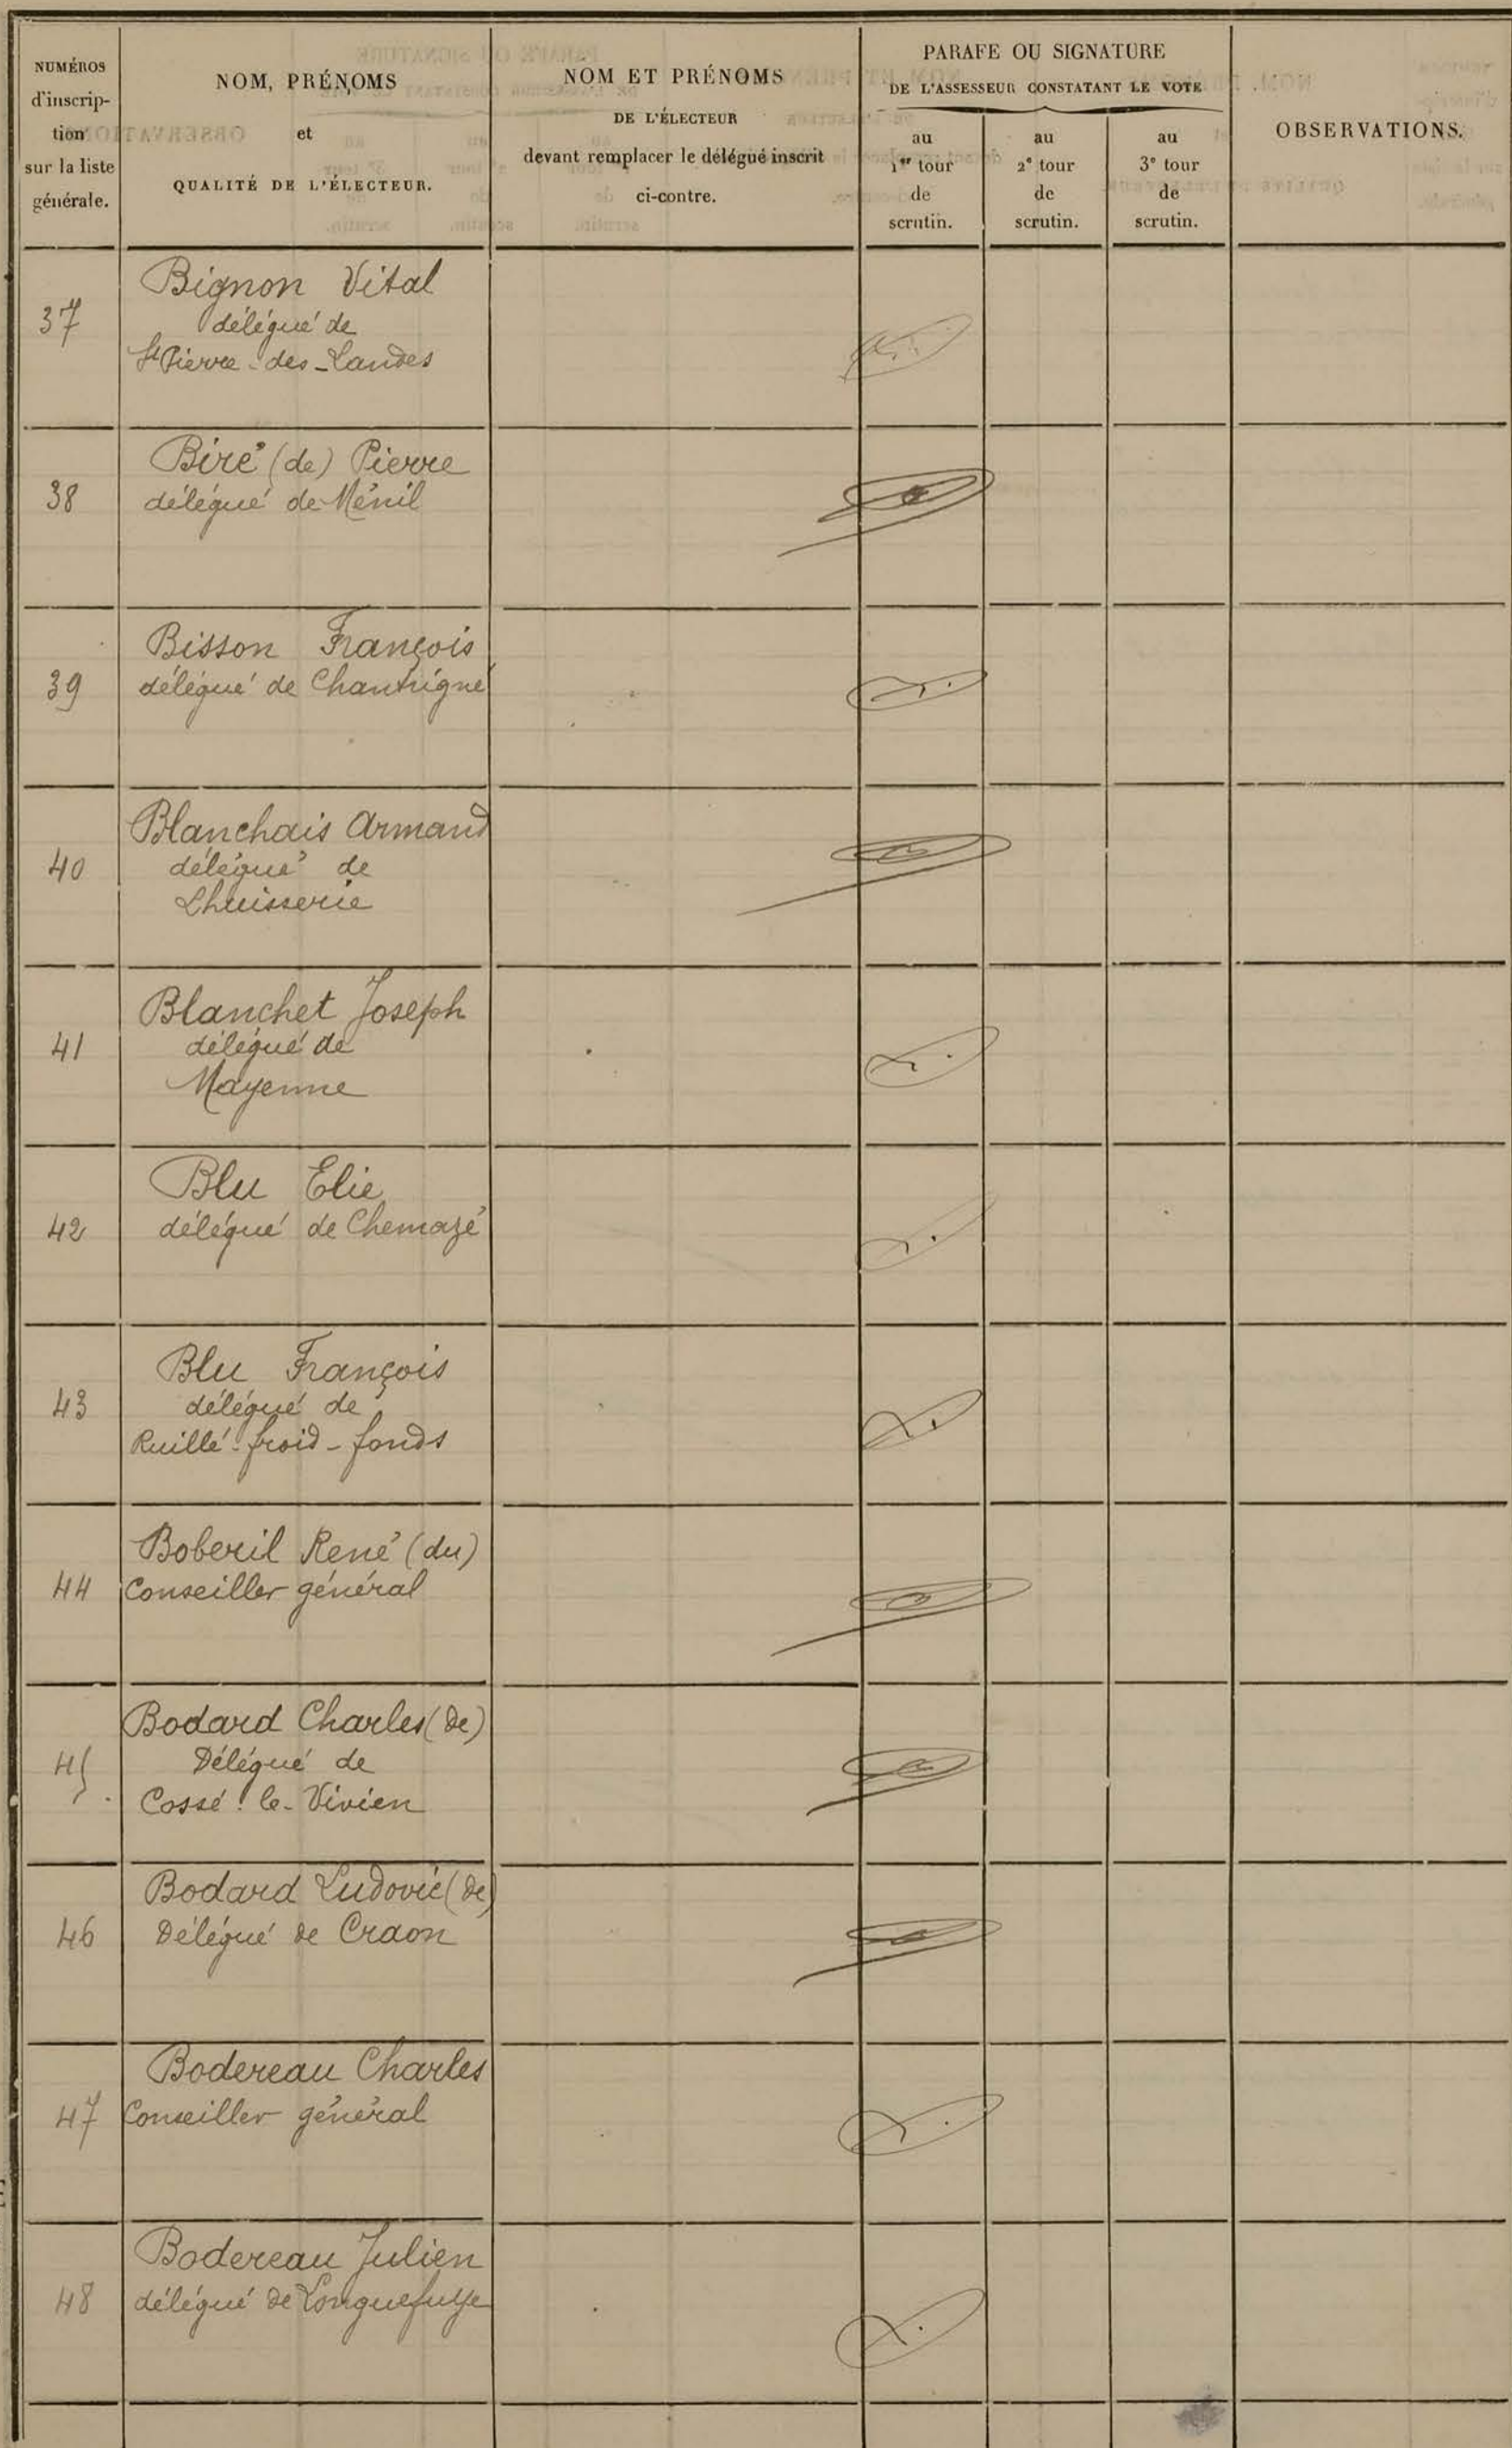 NUMÉROS
d'inscrip-
tion
sur la liste
générale.
NOM, PRÉNOMS
et
QUALITÉ DE L'ÉLECTEUR.
NOM ET PRÉNOMS
DE L'ÉLECTEUR
devant remplacer le délégué inscrit
ci-contre.
PARAFE OU SIGNATURE
DE L'ASSESSEUR CONSTATANT LE VOTE
au
1er tour
de
scrutin.
au
2e tour
de
scrutin.
au
3e tour
de
scrutin.
OBSERVATIONS.
37
Bignon Vital
délégué de
St Pierre-des-Landes
38
Biré (de) Pierre
délégué de Ménil
39
Bisson François
délégué de Chantrigné
40
Blanchais Armand
délégué de
Lhuisserie
41
Blanchet Joseph
délégué de
Mayenne
42
Blu Elie
délégué de Chemazé
43
Blu François
délégué de
Ruillé-froid-fonds
44
Boberil René (du)
Conseiller général
45
Bodard Charles (de)
Délégué de
Cossé-le-Vivien
46
Bodard Ludovic (de)
Délégué de Craon
47
Bodereau Charles
Conseiller général
48
Bodereau Julien
délégué de Longuefuye